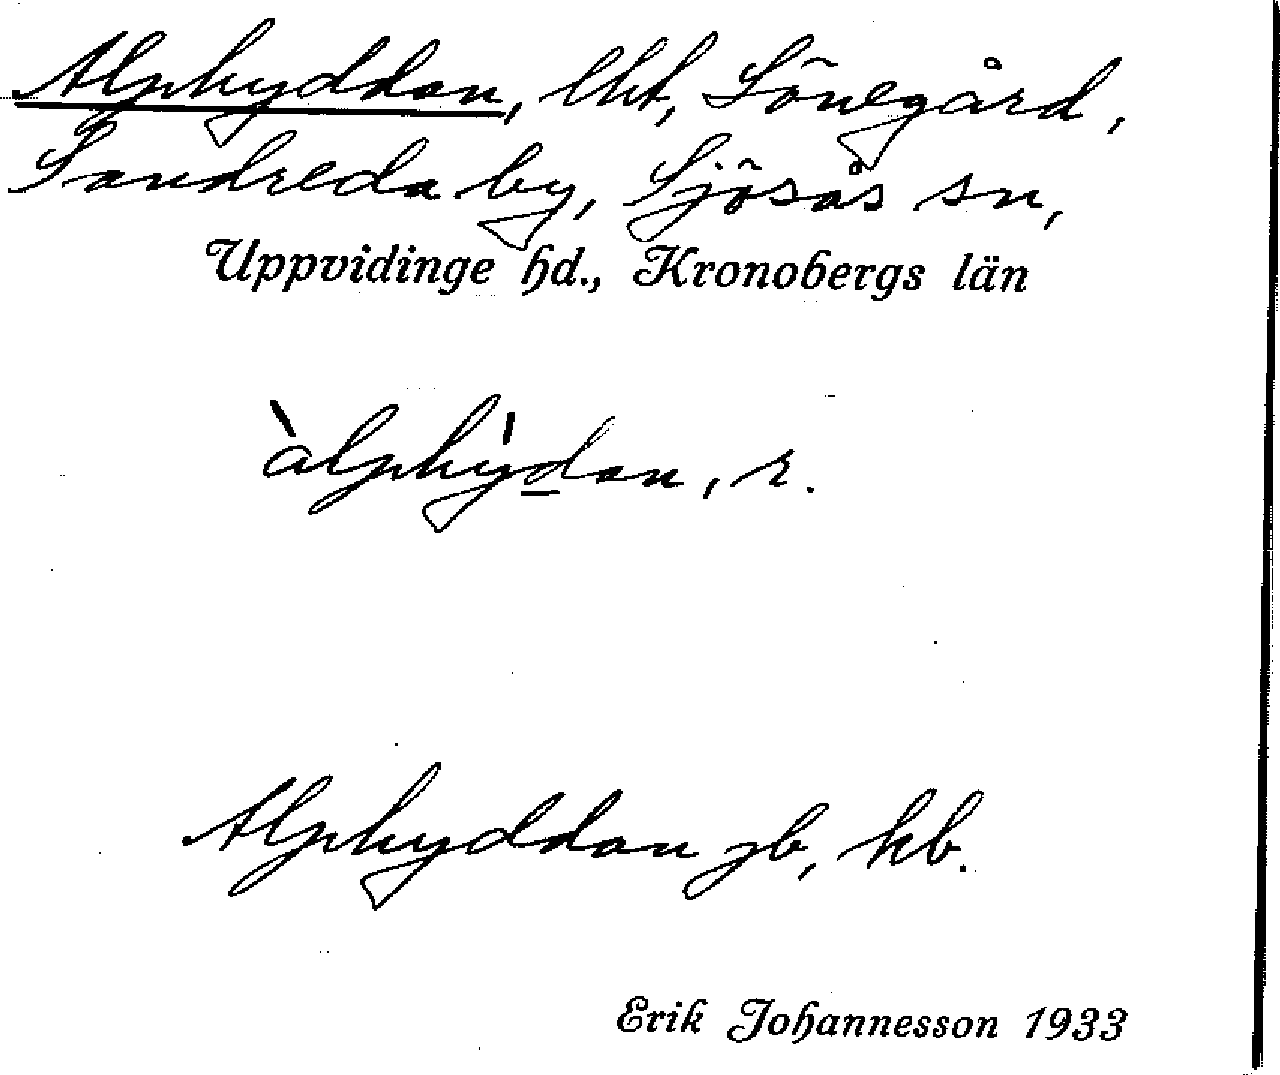 Alphyddan, lht, Sönegård,
Sandreda by, Sjösås sn,
Uppvidinge hd., Kronobergs län
àlphy̍d̲an, r.
Alphyddan jb, kb.
Erik Johannesson 1933